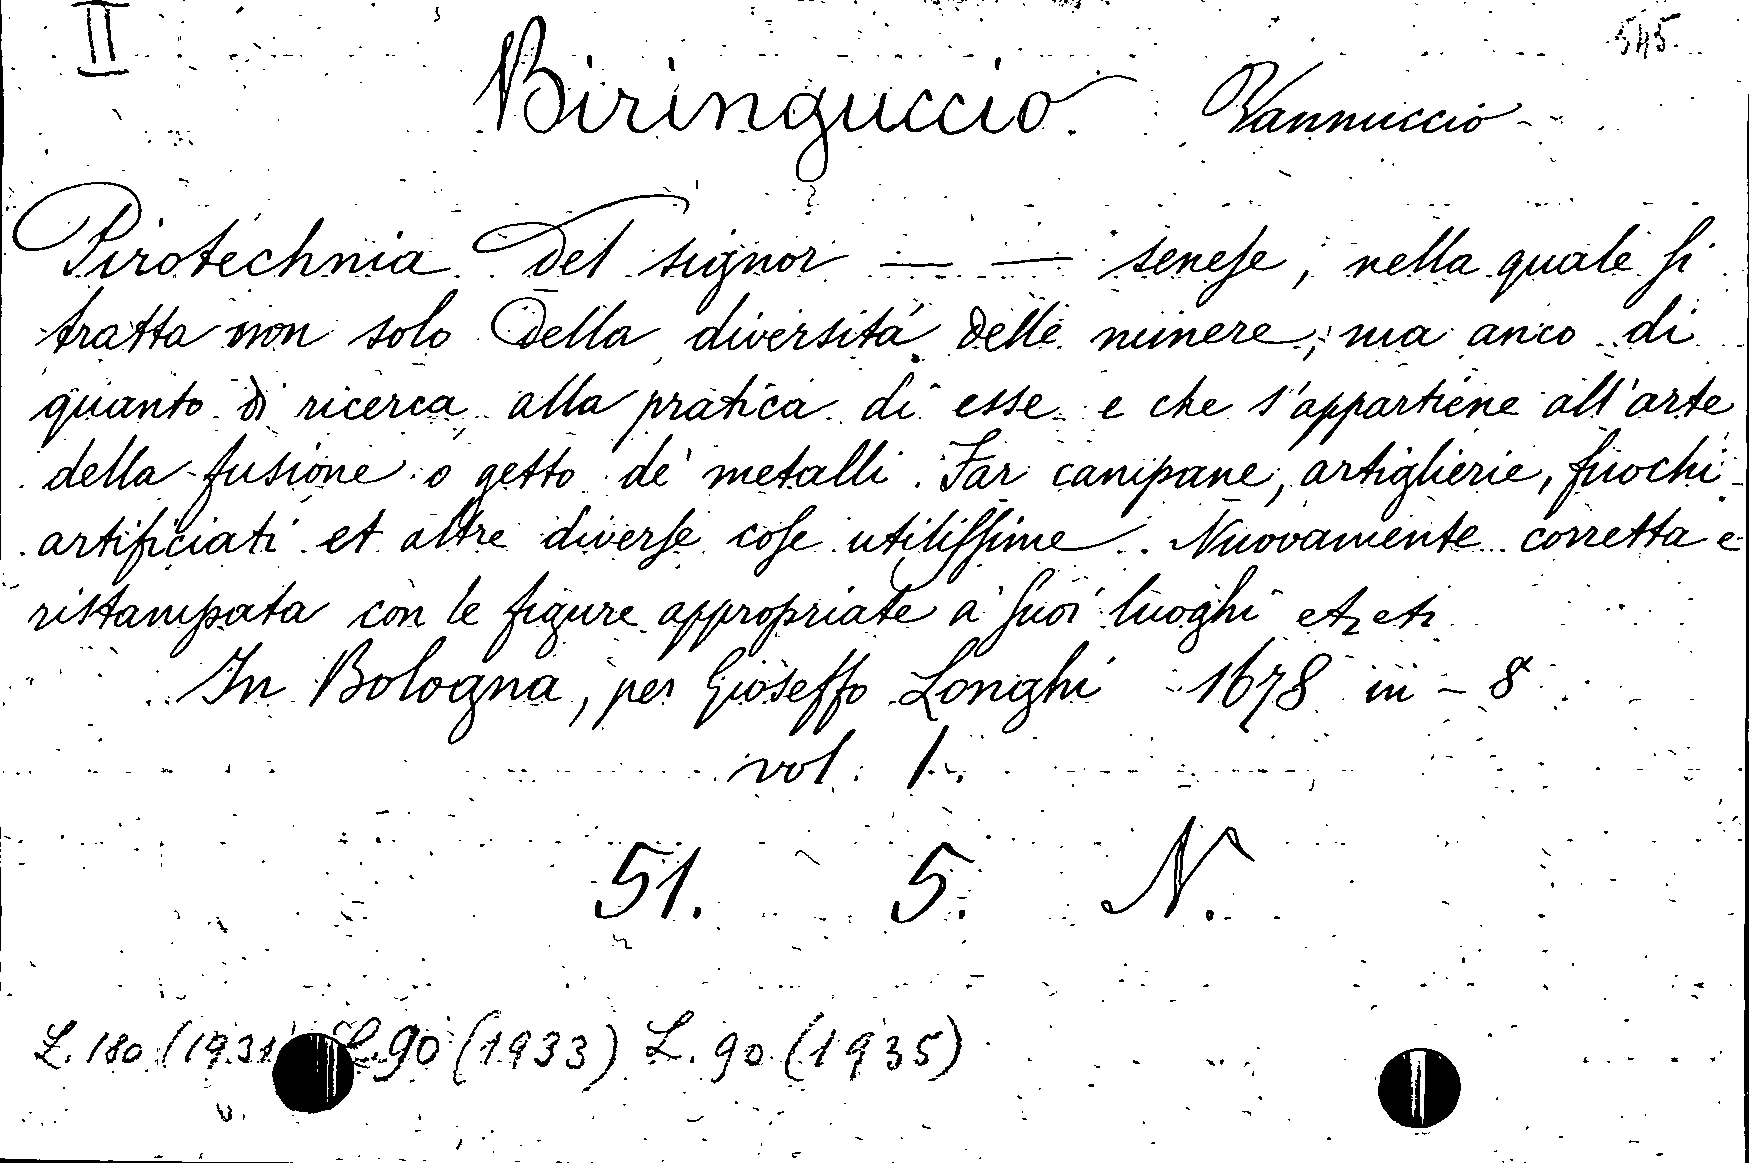 II
545.
Biringuccio Vannuccio
Pirotechnia del signor — — seneſe, nella quale ſi
tratta non solo della diversità delle minere, ma anco di
quanto di ricerca alla pratica di esse e che s'appartiene all'arte
della fusione o getto de' metalli. Far campane, artiglierie, fuochi
artificiati et altre diverſe coſe utiliſſime. Nuovamente corretta e
ristampata con le figure appropriate a' ſuoi luoghi etz etz
In Bologna, per Gioseffo Longhi 1678 in - 8
vol. 1.
51. 5. N.
L. 180 (1931) L. 90 (1933) L. 90 (1935)